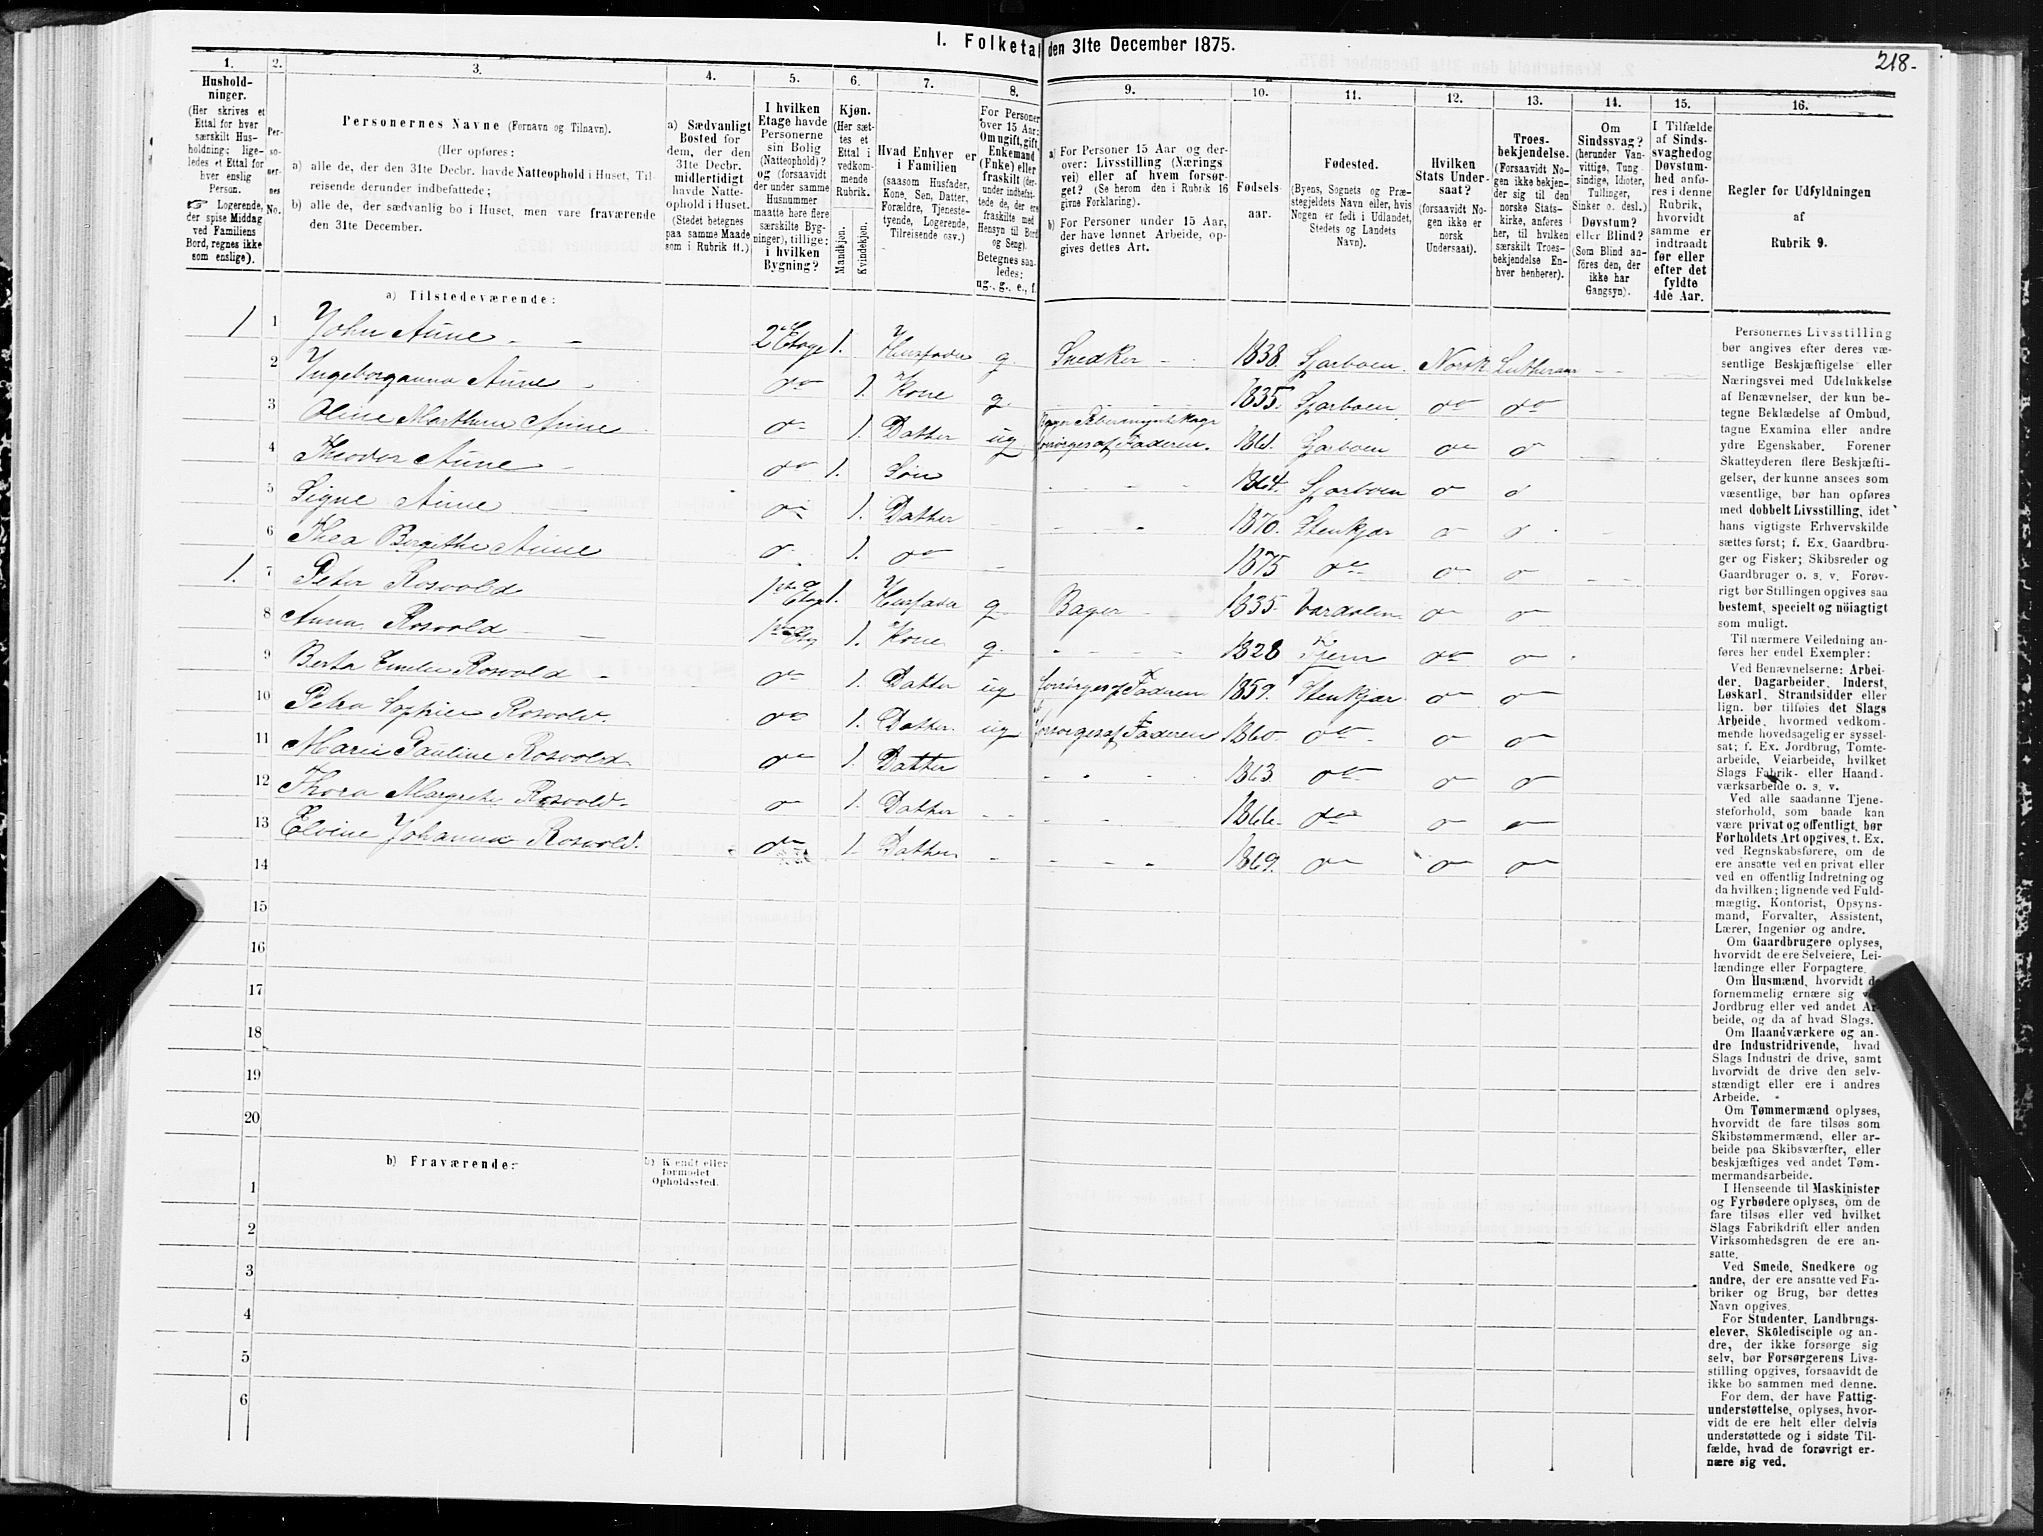 I. Folketal den 31te December 1875.
218.
1. 2. 3. 4. 5. 6. 7. 8. 9. 10. 11. 12. 13. 14. 15. 16.
Hushold-
ninger.
(Her skrives et
Ettal for hver
særskilt Hus-
holdning; lige-
ledes et Ettal for
hver enslig
Person.
☞ Logerende,
der spise Middag
ved Familiens
Bord, regnes ikke
som enslige).
Per-
so-
ner-
nes
No.
Personernes Navne (Fornavn og Tilnavn).
(Her opføres:
a) alle de, der den 31te Decbr. havde Natteophold i Huset, Til-
reisende derunder indbefattede;
b) alle de, der sædvanlig bo i Huset, men vare fraværende
den 31te December.
a) Sædvanligt
Bosted for
dem, der den
31te Decbr.
midlertidigt
havde Natte-
ophold i Huset.
(Stedet betegnes
paa samme Maade
som i Rubrik 11.)
I hvilken
Etage havde
Personerne
sin Bolig
(Natteophold)?
og (forsaavidt
der under samme
Husnummer
maatte høre flere
særskilte Byg-
ninger), tillige:
i hvilken
Bygning?
Kjøn.
(Her sæt-
tes et
Ettal i
vedkom-
mende
Rubrik.
Mandkjøn.
Kvindekjøn.
Hvad Enhver er
i Familien
(saasom Husfader,
Kone, Søn, Datter,
Forældre, Tjeneste-
tyende, Logerende,
Tilreisende osv.)
For Personer
over 15 Aar:
Om ugift, gift,
Enkemand
(Enke) eller
fraskilt (der-
under indbefat-
tede de, der ere
fraskilte med
Hensyn til Bord
og Seng).
Betegnes saa-
ledes:
ug., g., e., f.
a) For Personer 15 Aar og der-
over: Livsstilling (Nærings
vei) eller af hvem forsør-
get? (Se herom den i Rubrik 16
givne Forklaring).
b) For Personer under 15 Aar,
der have lønnet Arbeide, op-
gives dettes Art.
Fødsels-
aar.
Fødested.
(Byens, Sognets og Præ-
stegjeldets Navn eller, hvis
Nogen er født i Udlandet,
Stedets og Landets
Navn).
Hvilken
Stats Under-
saat?
(forsaavidt No-
gen ikke er
norsk
Undersaat).
Troes-
bekjendelse.
(Forsaavidt No-
gen ikke bekjen-
der sig til den
norske Stats-
kirke, anføres
her, til hvilken
særskilt Troes-
bekjendelse En-
hver henhører).
Om
Sindssvag?
(herunder Van-
vittige, Tung-
sindige, Idioter,
Tullinger,
Sinker o. desl.)
Døvstum?
eller Blind?
(Som Blind an-
föres den, der
ikke har
Gangsyn).
I Tilfælde
af Sinds-
svaghedog
Døvstum-
hed anfø-
res i denne
Rubrik,
hvorvidt
samme er
indtraadt
før eller
efter det
fyldte
4de Aar.
Regler før Udfyldningen
af
Rubrik 9.
a) Tilstedeværende:
1 1 John Aune 2 Etage 1. Husfader g Snedker 1838. Sparboen. Norsk Lutheraner
2 Ingeborganna Aune do 1. Kone g. 1835. Sparboen do do
3 Oline Marthine Aune do 1. Datter ug forsørges af Faderen. 1861. Sparboen do do
4 Theodor Aune do 1. Søn 1864. Sparboen do do
5 Signe Aune do 1. Datter 1870. Stenkjær do do
6 Thea Bergithe Aune do 1. do 1875 do do do
1. 7 Peter Rosvold 1ste Etage 1. Husfader g. Bager 1835. Værdalen do do
8 Anna Rosvold 1ste Etg 1. Kone g. 1828 do do
9 Berta Emelie Rosvold do 1. Datter ug forsørges af Faderen 1859. Stenkjær. do do
10 Petra Sophie Rosvold. do 1. Datter. ug forsørges af Faderen 1860. do do do
11 Marie Pauline Rosvold do 1. Datter 1863 do do do
12 Thora Margrete Rosvold do 1. Datter 1866. do do do
13 Elvine Johanna Rosvold. do 1. Datter 1869. do do do
14
15
16
17
18
19
20
b) Fraværende:
b) Kjendt eller
formodet
Opholdssted.
1
2
3
4
5
6
Personernes Livsstilling
bør angives efter deres væ-
sentlige Beskjæftigelse eller
Næringsvei med Udelukkelse
af Benævnelser, der kun be-
tegne Beklædelse af Ombud,
tagne Examina eller andre
ydre Egenskaber. Forener
Skatteyderen flere Beskjæfti-
gelser, der kunne ansees som
væsentlige, bør han opføres
med dobbelt Livsstilling, idet
hans vigtigste Erhvervskilde
sættes først; f. Ex. Gaardbru-
ger og Fisker; Skibsreder og
Gaardbruger o. s. v. Forøv-
rigt bør Stillingen opgives saa
bestemt, specielt og nöiagtigt
som muligt.
Til nærmere Veiledning an-
føres her endel Exempler:
Ved Benævnelserne: Arbei-
der, Dagarbeider, Inderst,
Løskarl, Strandsidder eller
lign. bør tilføies det Slags
Arbeide, hvormed vedkom-
mende hovedsagelig er syssel-
sat; f. Ex. Jordbrug, Tomte-
arbeide, Veiarbeide, hvilket
Slags Fabrik- eller Haand-
værksarbeide o. s. v.
Ved alle saadanne Tjene-
steforhold, som baade kan
være privat og offentligt, bør
Forholdets Art opgives, t. Ex.
ved Regnskabsførere, om de
ere ansatte ved en privat eller
ved en offentlig Indretning og
da hvilken; lignende ved Fuld-
mægtig, Kontorist, Opsyns-
mand, Forvalter, Assistent,
Lærer, Ingeniør og andre.
Om Gaardbrugere oplyses,
hvorvidt de ere Selveiere, Lei-
lændinge eller Forpagtere.
Om Husmænd, hvorvidt de
fornemmelig ernære sig ved
Jordbrug eller ved andet Ar-
beide, og da af hvad Slags.
Om Haandværkere og an-
dre Industridrivende, hvad
Slags Industri de drive, samt
hvorvidt de drive den selv-
stændigt eller ere i andres
Arbeide.
Om Tømmermænd oplyses,
hvorvidt de fare tilsøs som
Skibstømmermænd, eller ar-
beide paa Skibsværfter, eller
beskjæftiges ved andet Tøm-
mermandsarbeide.
I Henseende til Maskinister
og Fyrbødere oplyses, om de
fare tilsøs eller ved hvilket
Slags Fabrikdrift eller anden
Virksomhedsgren de ere an-
satte.
Ved Smede, Snedkere og
andre, der ere ansatte ved Fa-
briker og Brug, bør dettes
Navn opgives.
For Studenter, Landbrugs-
elever, Skôledisciple og an-
dre, der ikke forsørge sig
selv, bør Forsørgerens Livs-
stilling opgives, forsaavidt de
ikke bo sammen med denne.
For dem, der have Fattig-
understøttelse, oplyses, hvor-
vidt de ere helt eller delvis
understøttede og i sidste Til-
fælde, hvad de forøvrigt er-
nære sig ved.